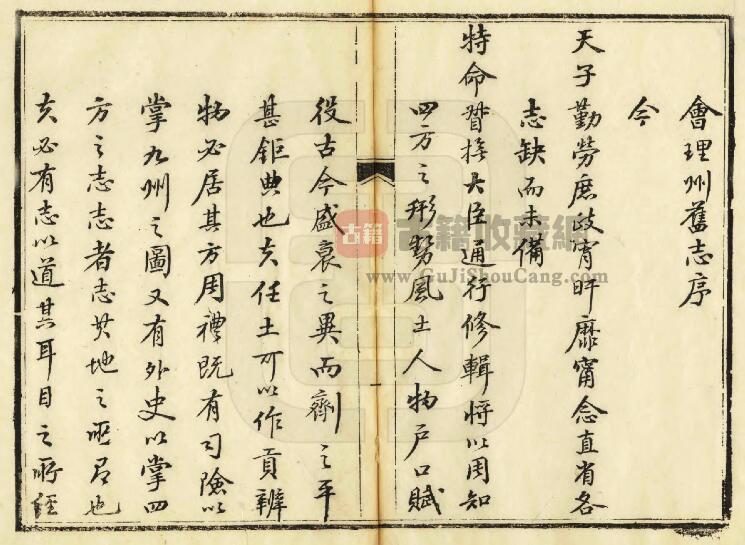 會理州舊志序
今
天子勤勞庶政宵旰靡甯念直省各
志缺而未備
特命督撫大臣通行修輯將以周知
四方之形勢風土人物户口賦
役古今盛衰之異而劑之平
甚鉅典也夫任土可以作貢辨
物必居其方周禮既有司險以
掌九州之圖又有外史以掌四
方之志志者志其地之所有也
夫必有志以道其耳目之所經
古籍 古籍收藏網
www.GuJiShouCang.com